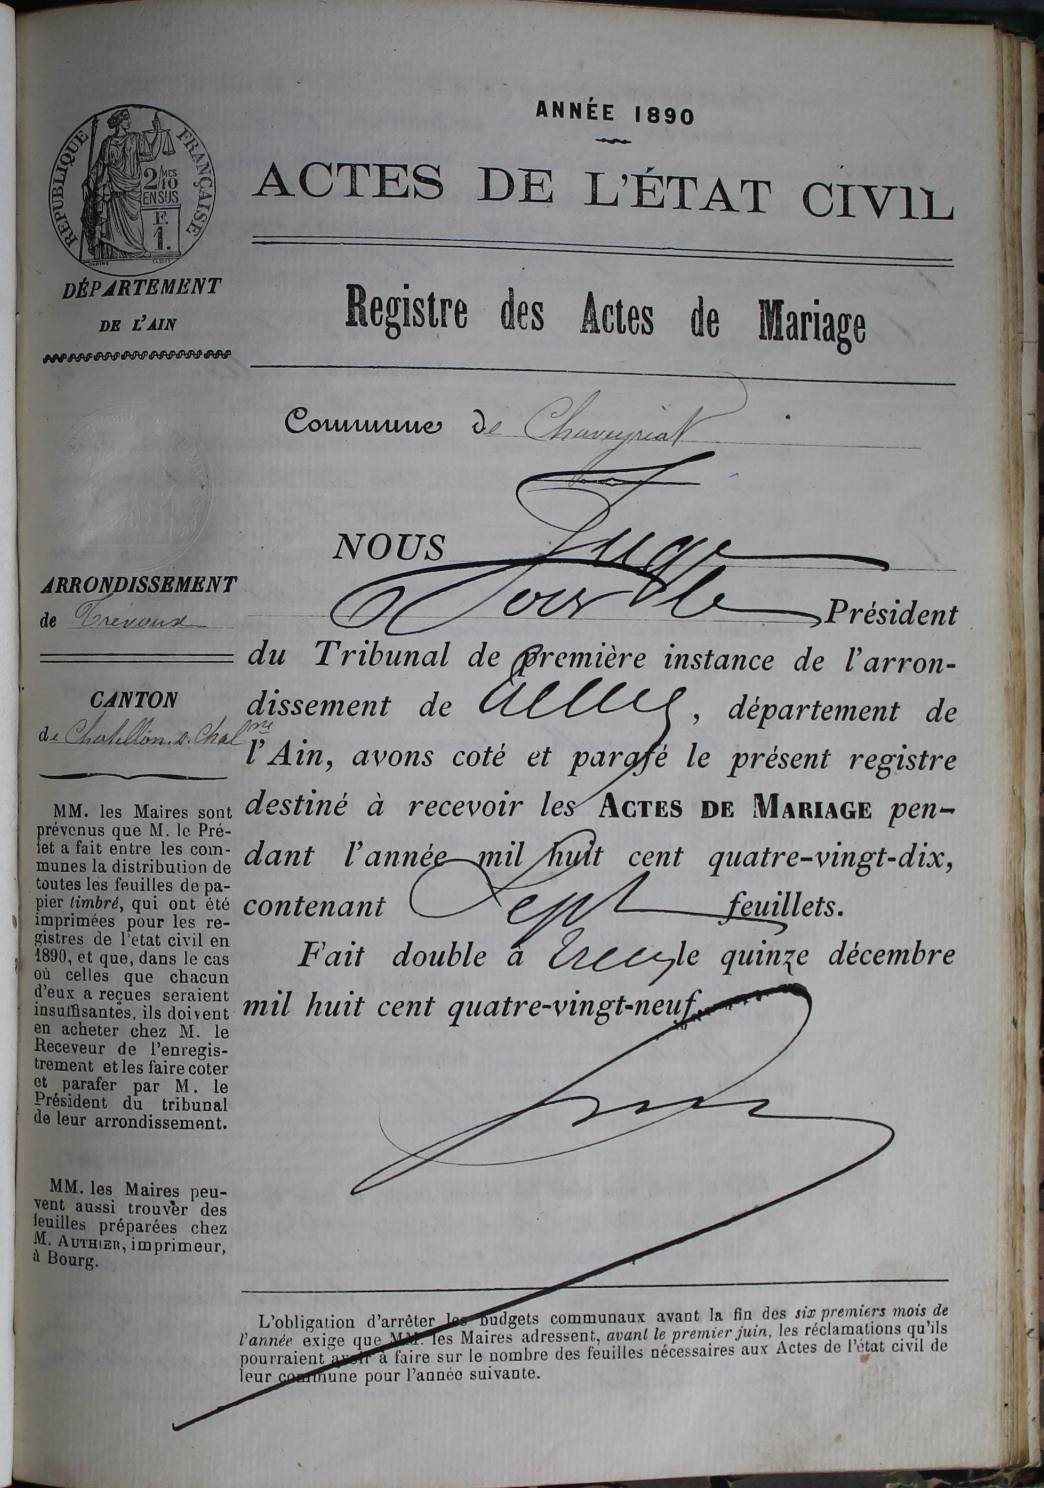 ANNÉE 1890
ACTES DE L'ÉTAT CIVIL
RÉPUBLIQUE FRANÇAISE
2 MES
10
EN SUS
F.
1.
DÉPARTEMENT
DE L'AIN
Registre des Actes de Mariage
Commune de Chaveyriat
NOUS Juge
Président
du Tribunal de première instance de l'arron-
dissement de , département de
l'Ain, avons coté et parafé le présent registre
destiné à recevoir les ACTES DE MARIAGE pen-
dant l'année mil huit cent quatre-vingt-dix,
contenant Sept feuillets.
Fait double à le quinze décembre
mil huit cent quatre-vingt-neuf
ARRONDISSEMENT
de Trévoux
CANTON
de Chatillon s. Chalne
MM. les Maires sont
prévenus que M. le Pré-
fet a fait entre les com-
munes la distribution de
toutes les feuilles de pa-
pier timbré, qui ont été
imprimées pour les re-
gistres de l'état civil en
1890, et que, dans le cas
où celles que chacun
d'eux a reçues seraient
insuffisantes, ils doivent
en acheter chez M. le
Receveur de l'enregis-
trement et les faire coter
et parafer par M. le
Président du tribunal
de leur arrondissement.
MM. les Maires peu-
vent aussi trouver des
feuilles préparées chez
M. AUTHIER, imprimeur,
à Bourg.
L'obligation d'arrêter les budgets communaux avant la fin des six premiers mois de
l'année exige que MM. les Maires adressent, avant le premier juin, les réclamations qu'ils
pourraient avoir à faire sur le nombre des feuilles nécessaires aux Actes de l'état civil de
leur commune pour l'année suivante.